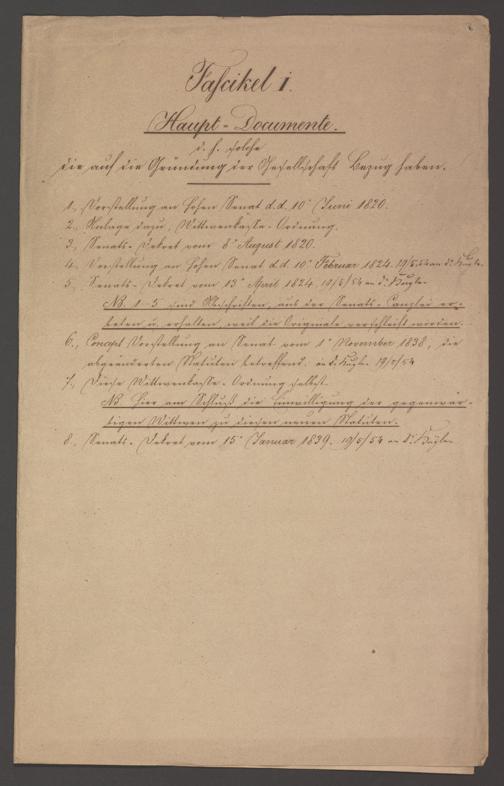 Fascikel 1.
Haupt-Documente.
d. h. solche
die auf die Gründung der Gesellschaft Bezug haben.
1., Vorstellung an hohen Senat d.d. 10ⁿ Juni 1820.
2., Anlage dazu, Wittwenkasse-Ordnung.
3., Senats-Dekret vom 8ⁿ August 1820.
4., Vorstellung an hohen Senat d.d. 10ⁿ Februar 1824. 19/5/54 an d.
5., Senats-Dekret vom 13ⁿ April 1824. 19/5/54 an d.
NB. 1-5 sind Abschriften, aus der Senats-Canzlei er-
beten u. erhalten, weil die Originale verschleift worden.
6., Concept Vorstellung an Senat vom 1ⁿ November 1838, die
abgeänderten Statuten betreffend. an d. 19/5/54
7., Diese Wittwenkasse-Ordnung selbst.
NB hier am Schluß die Einwilligung der gegenwär-
tigen Wittwen zu diesen neuen Statuten.
8., Senats-Dekret vom 15ⁿ Januar 1839. 19/5/54 an d.